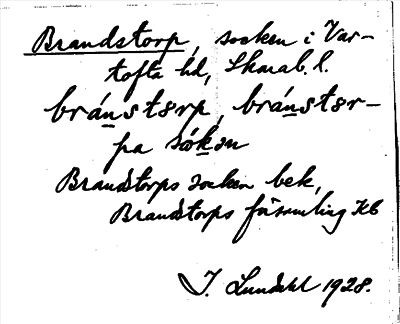 Brandstorp, socken i Var-
tofta hd, Skarab. l.
bránstørp, bránstør-
pa sókən
Brandstorps socken bek,
Brandstorps församling Kb
I. Lundahl 1928.